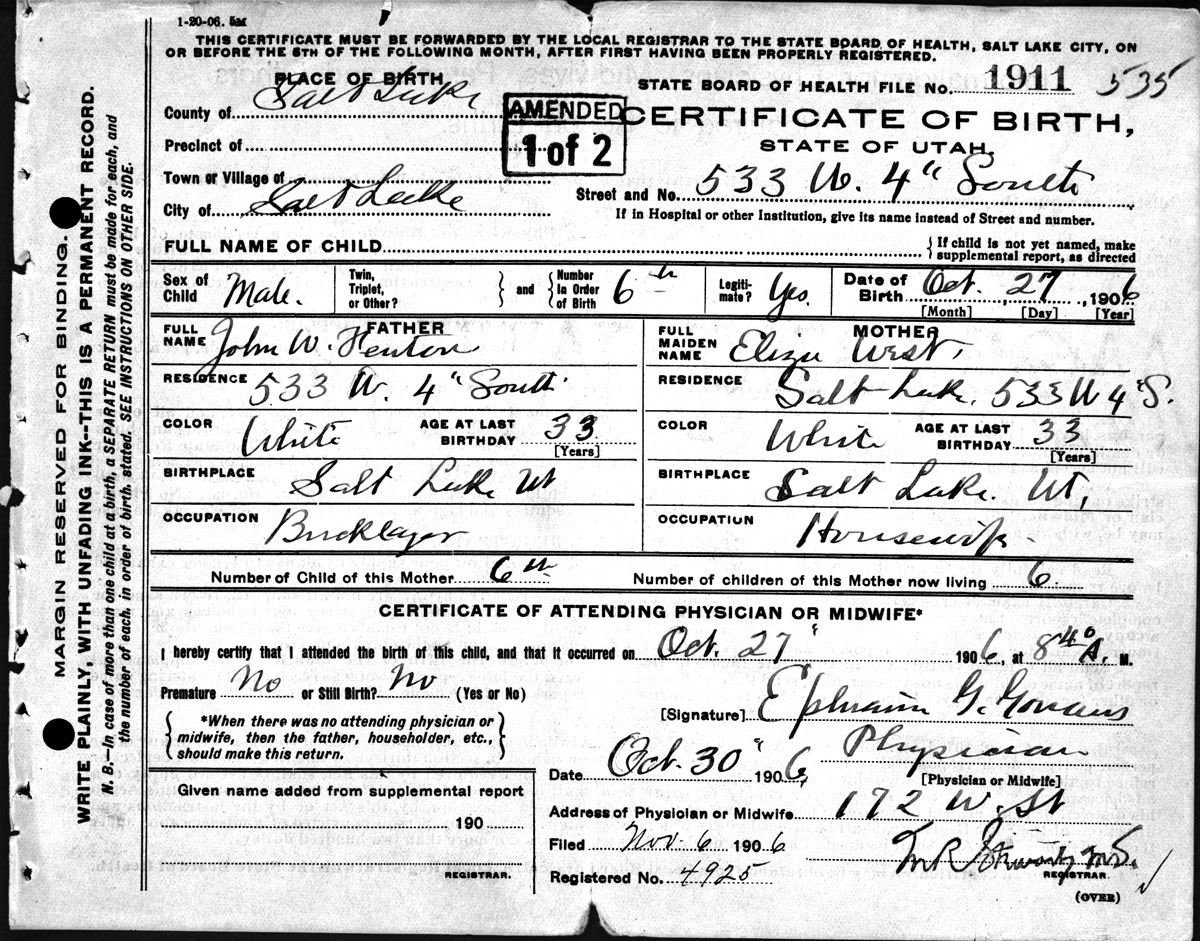 1-20-06. 5M
THIS CERTIFICATE MUST BE FORWARDED BY THE LOCAL REGISTRAR TO THE STATE BOARD OF HEALTH, SALT LAKE CITY, ON
OR BEFORE THE 5TH OF THE FOLLOWING MONTH, AFTER FIRST HAVING BEEN PROPERLY REGISTERED.
PLACE OF BIRTH
STATE BOARD OF HEALTH FILE NO. 1911 535
County of Salt Lake
AMENDED
1 of 2
CERTIFICATE OF BIRTH,
STATE OF UTAH.
Precinct of
Town or Village of
Street and No. 533 W. 4" South
City of Salt Lake
If in Hospital or other Institution, give its name instead of Street and number.
FULL NAME OF CHILD
If child is not yet named, make
supplemental report, as directed
Sex of Child Male.
Twin, Triplet, or Other?
and
Number In Order of Birth 6th
Legiti-mate? Yes.
Date of Birth Oct. 27, 1906
[Month] [Day] [Year]
FATHER
FULL NAME John W. Fenton
MOTHER
FULL MAIDEN NAME Eliza West,
RESIDENCE 533 W. 4" South
RESIDENCE Salt Lake. 533 W 4" S.
COLOR White
AGE AT LAST BIRTHDAY 33
[Years]
COLOR White
AGE AT LAST BIRTHDAY 33
[Years]
BIRTHPLACE Salt Lake Ut
BIRTHPLACE Salt Lake. Ut,
OCCUPATION Bricklayer
OCCUPATION Housewife
Number of Child of this Mother 6th
Number of children of this Mother now living 6
CERTIFICATE OF ATTENDING PHYSICIAN OR MIDWIFE*
I hereby certify that I attended the birth of this child, and that it occurred on Oct. 27 1906, at 8 40 A. M.
Premature No or Still Birth? No (Yes or No)
*When there was no attending physician or
midwife, then the father, householder, etc.,
should make this return.
[Signature] Ephraim G. Gowans
Physician
[Physician or Midwife]
Date Oct. 30" 1906
Given name added from supplemental report
190
REGISTRAR.
Address of Physician or Midwife 172 W. St
Filed Nov. 6 1906
Registered No. 4925
M.D.
REGISTRAR.
(OVER)
MARGIN RESERVED FOR BINDING.
WRITE PLAINLY, WITH UNFADING INK--THIS IS A PERMANENT RECORD.
N. B.--In case of more than one child at a birth, a SEPARATE RETURN must be made for each, and
the number of each, in order of birth, stated. SEE INSTRUCTIONS ON OTHER SIDE.